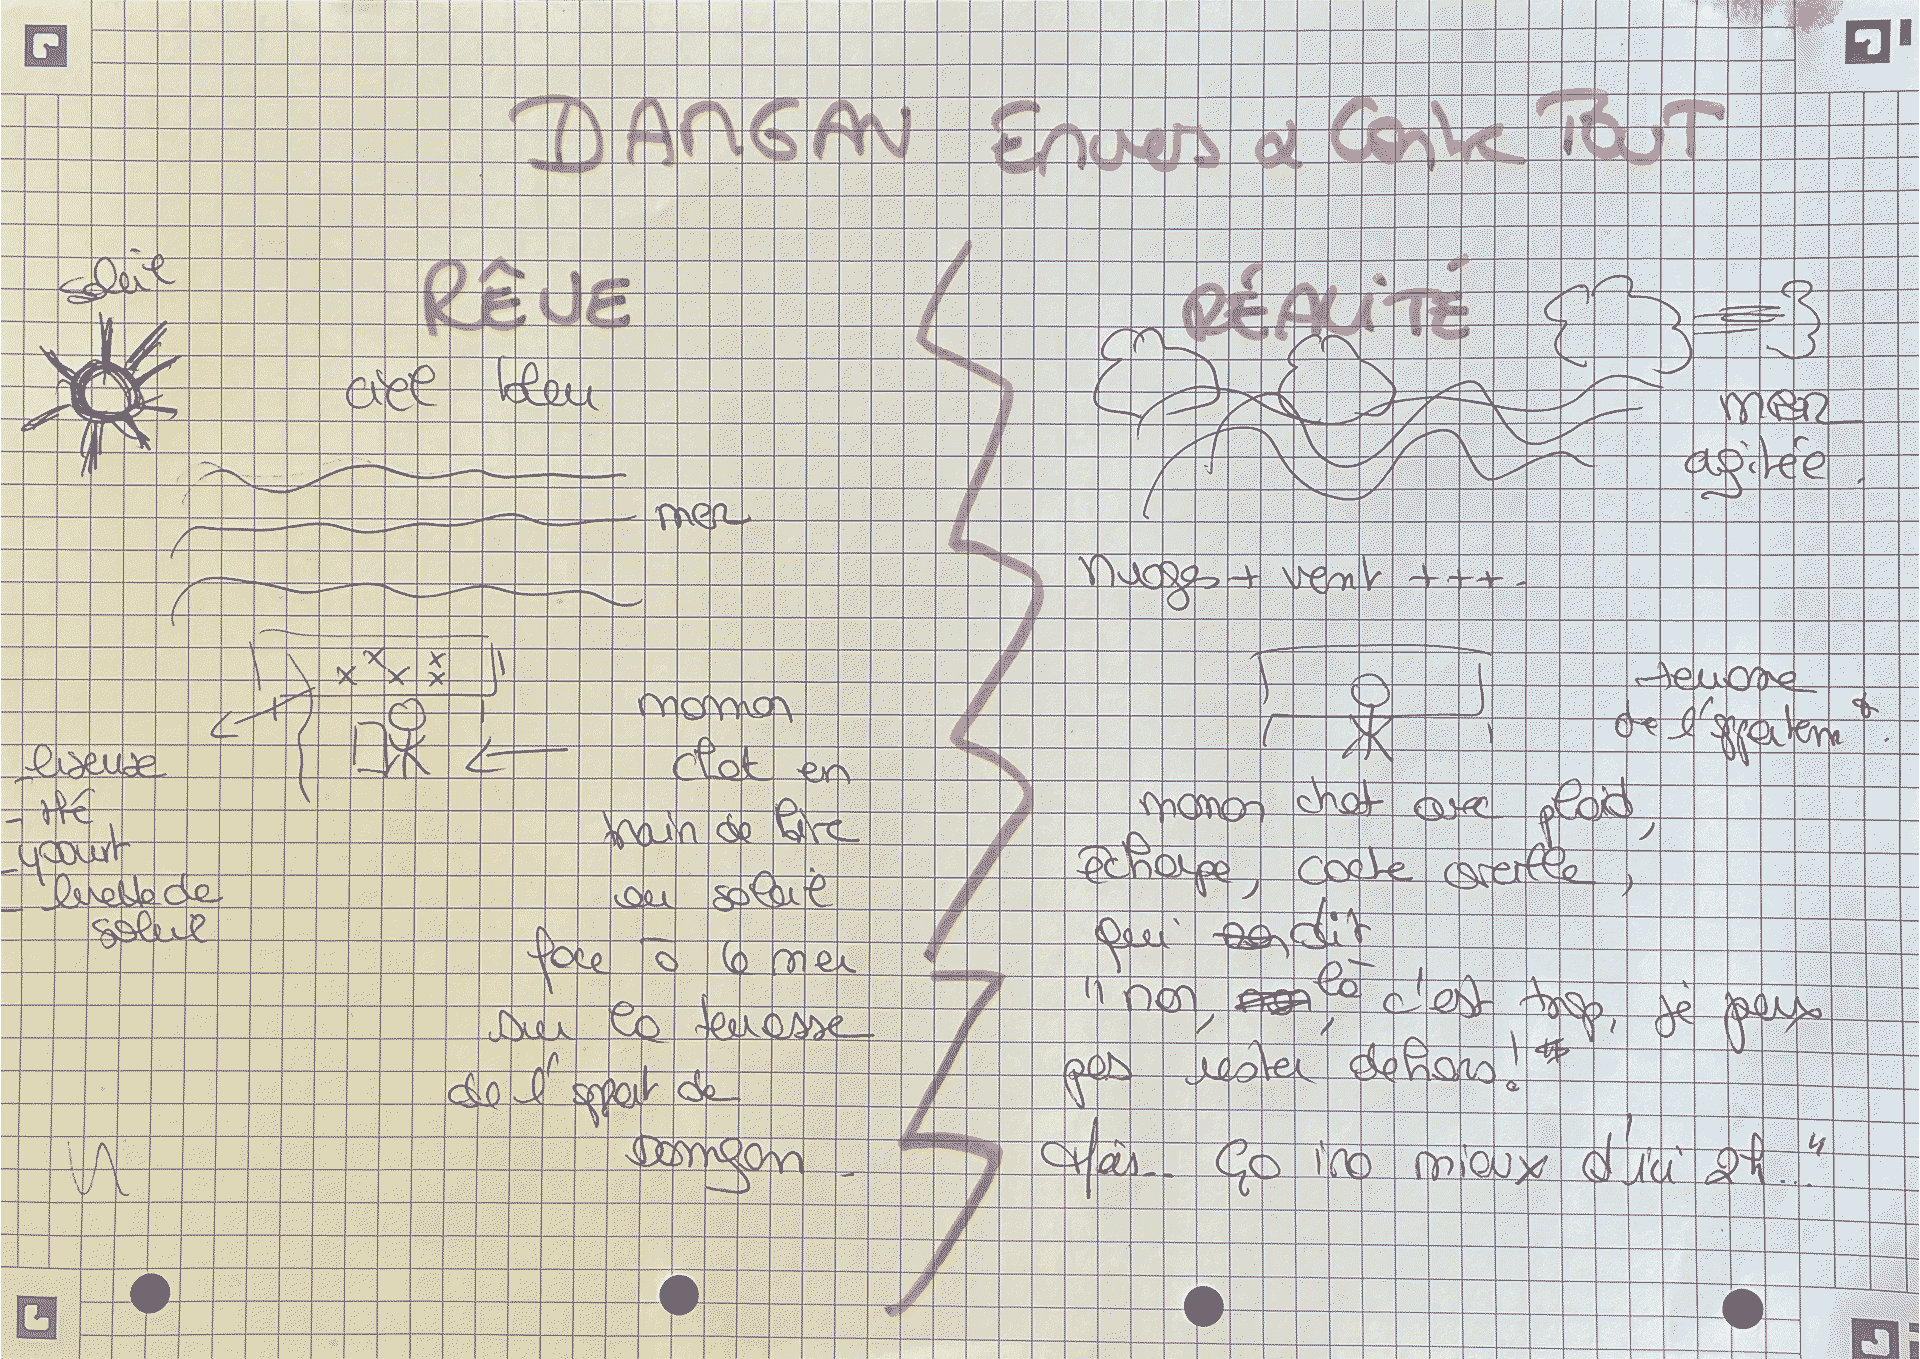 DANGAN Envers & Contre TOUT
soleil
RÊVE
ciel bleu
mer
maman
chat en
train de lire
au soleil
face à la mer
sur la terrasse
de l'appart de
Damgan.
liseuse
- thé
- yaourt
- lunette de
soleil
RÉALITÉ
mer
agitée.
Nuages + vent +++.
terrasse
de l'appartem^t.
maman chat avec plaid,
écharpe, cache oreille,
qui dit
"non, là, c'est trop, je peux
pas rester dehors!
Mais... ça ira mieux d'ici 2h..."